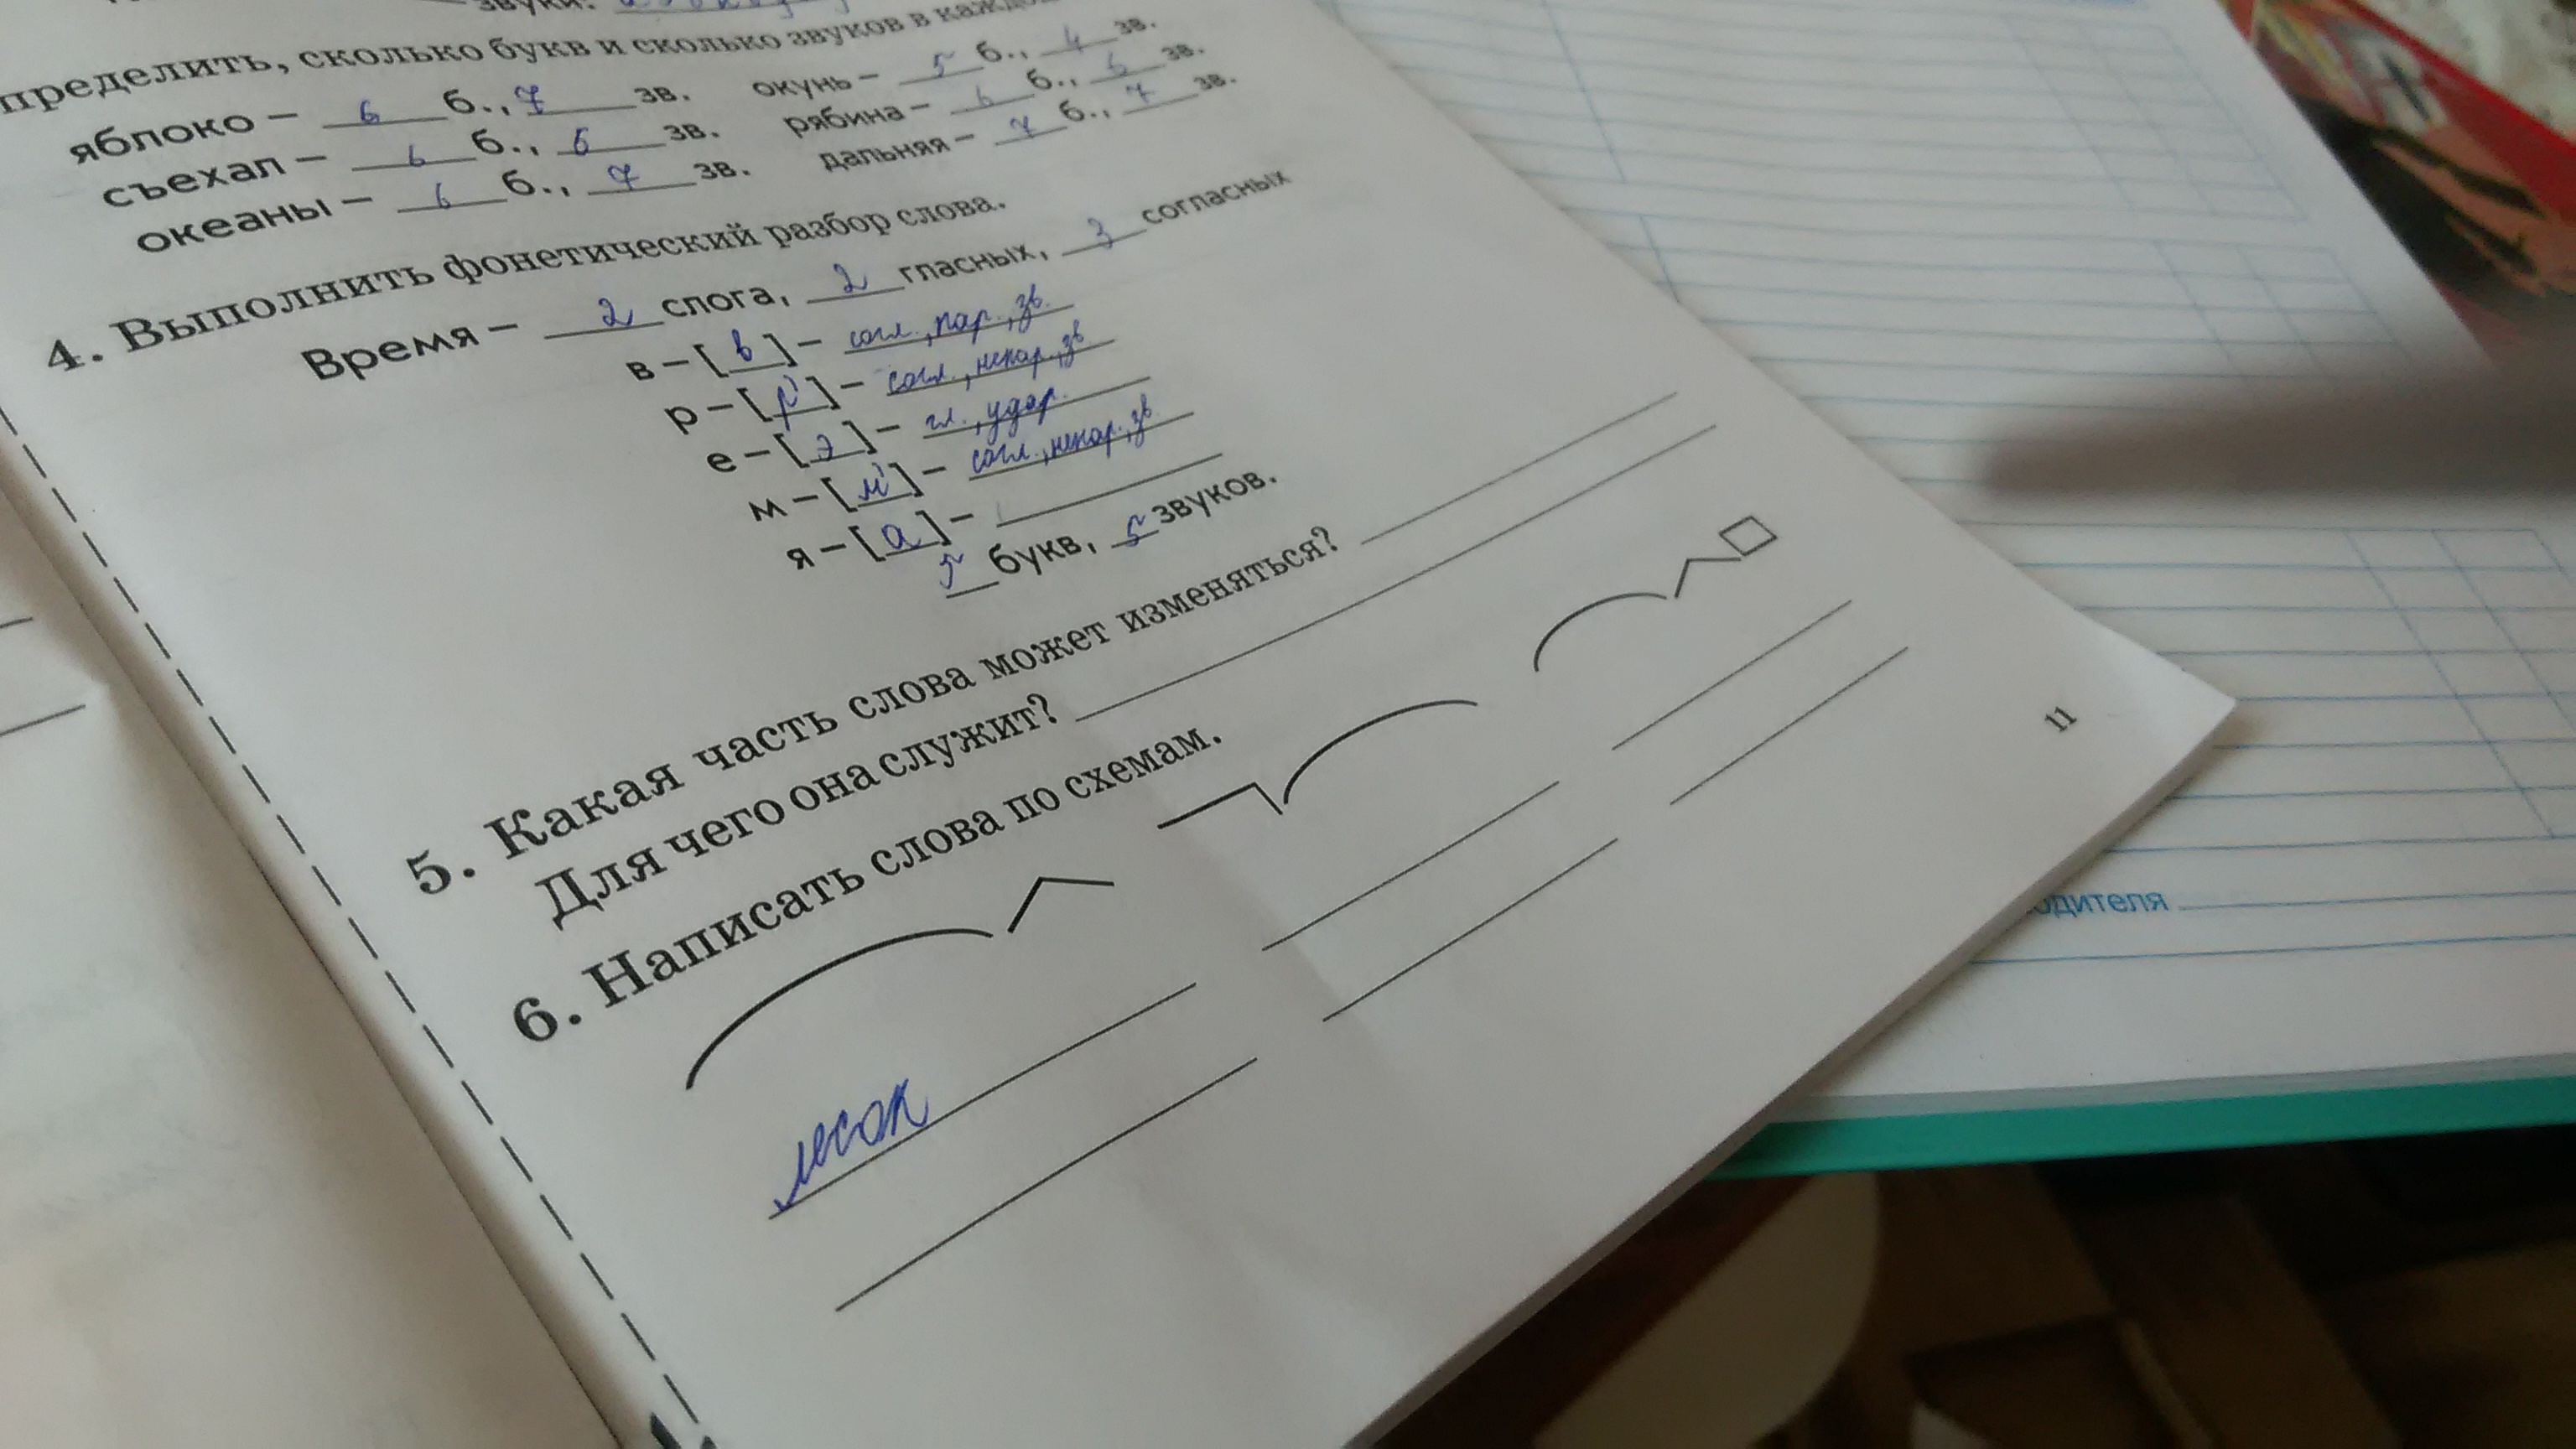 звуки:
пределить, сколько букв и сколько звуков в каждо
яблоко – 6 б., 7 зв. окунь – 5 б., 4 зв.
съехал – 6 б., 6 зв. рябина – 6 б., 6 зв.
океаны – 6 б., 7 зв. дальняя – 7 б., 7 зв.
4. Выполнить фонетический разбор слова.
Время – 2 слога, 2 гласных, 3 согласных
в – [в] – согл., пар., зв.
р – [р'] – согл., непар., зв
е – [э] – гл., удар.
м – [м'] – согл., непар., зв
я – [а] –
5 букв, 5 звуков.
5. Какая часть слова может изменяться?
Для чего она служит?
6. Написать слова по схемам.
лесок
11
одителя